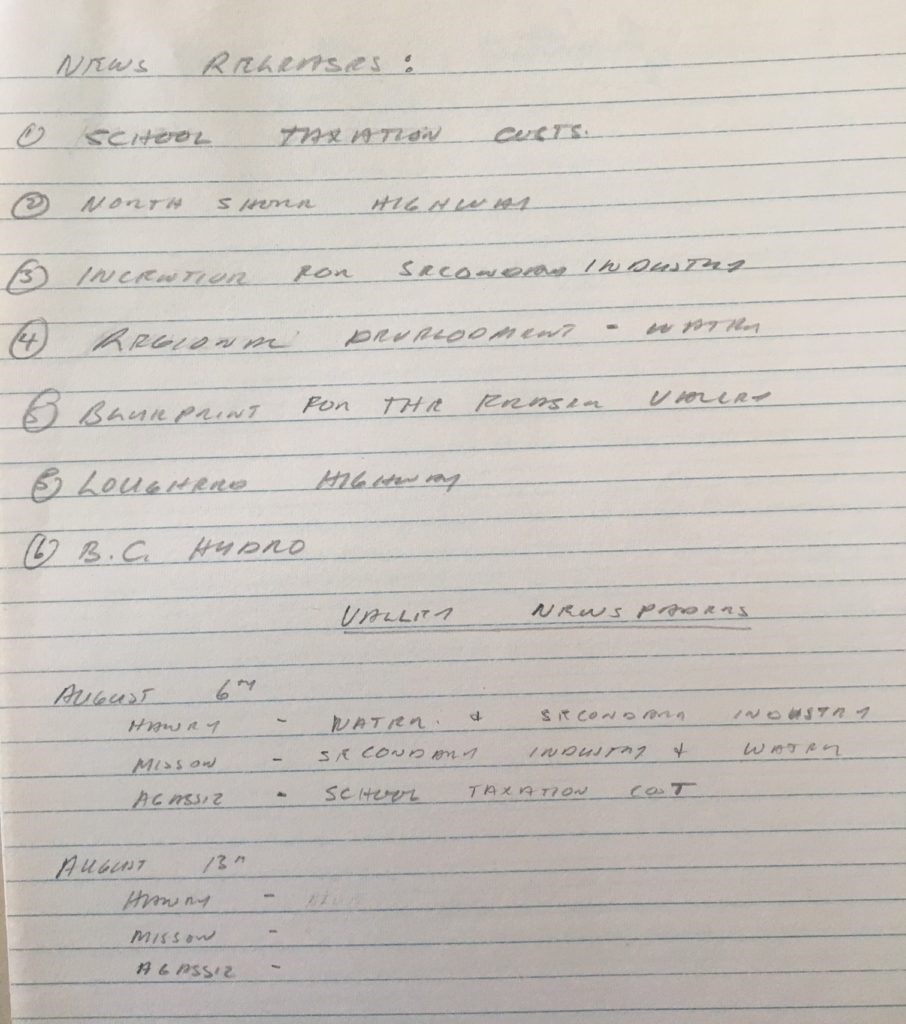 NEWS RELEASES:
① SCHOOL TAXATION COSTS.
② NORTH SHORE HIGHWAY
③ INCENTIVE FOR SECONDARY INDUSTRY
④ REGIONAL DEVELOPMENT - WATER
⑤ BLUEPRINT FOR THE FRASER VALLEY
⑤ LOUGHEED HIGHWAY
⑥ B.C. HYDRO
VALLEY NEWSPAPERS
AUGUST 6TH
HANEY - WATER & SECONDARY INDUSTRY
MISSON - SECONDARY INDUSTRY & WATER
AGASSIZ - SCHOOL TAXATION COST
AUGUST 13TH
HANEY -
MISSON -
AGASSIZ -